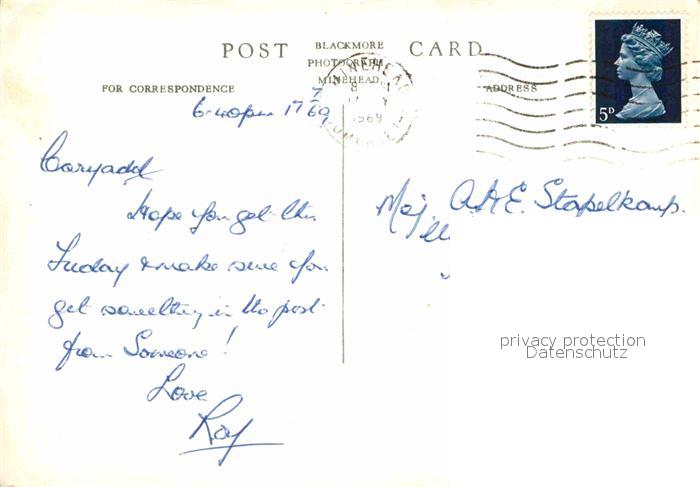 POST CARD
BLACKMORE
PHOTOGRAPH
MINEHEAD
FOR CORRESPONDENCE
ADDRESS
MINEHEAD
1969
SOMERSET
5D
6.40pm 17
7
69
Hope you get this
Friday & make sure you
get something in the post
from Someone!
Love
Ray
A.H.E. Stapelkamp.
privacy protection
Datenschutz